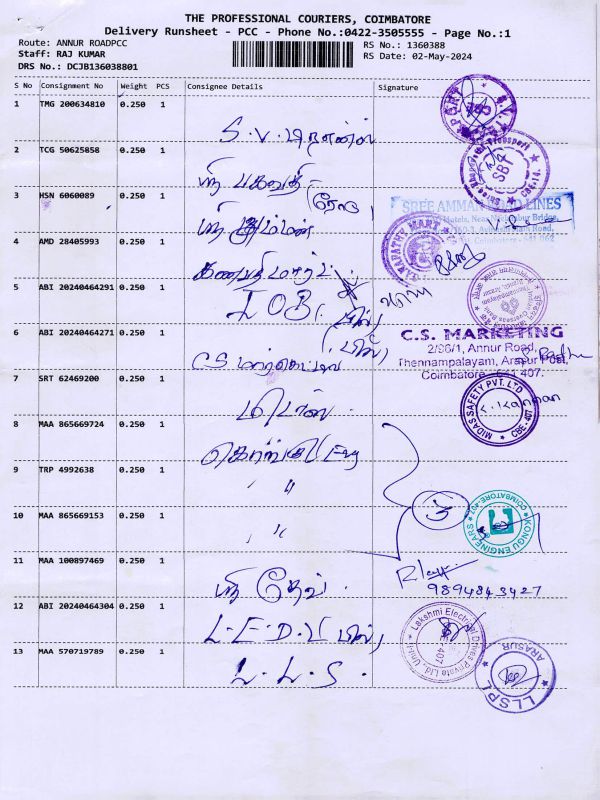 THE PROFESSIONAL COURIERS, COIMBATORE
Delivery Runsheet - PCC - Phone No.:0422-3505555 - Page No.:1
Route: ANNUR ROADPCC
RS No.: 1360388
Staff: RAJ KUMAR
RS Date: 02-May-2024
DRS No.: DCJB136038801
S No Consignment No Weight PCS Consignee Details Signature
1 TMG 200634810 0.250 1
S.V.
2 TCG 50625858 0.250 1
ஸ்ரீ பகவதி
SBT
CBE-14.
3 HSN 6060089 0.250 1
ஸ்ரீ அம்மன்
SREE AMMAN
LINES
4 AMD 28405993 0.250 1
கணபதி மார்ட்
5 ABI 20240464291 0.250 1
IOB
6 ABI 20240464271 0.250 1
C.S. மார்கெட்டிங்
C.S. MARKETING
2/96/1, Annur Road,
Thennampalayam, Arasur Post,
Coimbatore - 641 407.
7 SRT 62469200 0.250 1
மிடாஸ்
MIDAS SAFETY PVT. LTD
CBE-407
8 MAA 865669724 0.250 1
கொங்கு Eng
9 TRP 4992638 0.250 1
" "
10 MAA 865669153 0.250 1
" "
3
KONGU ENGINEARS
COIMBATORE-407
11 MAA 100897469 0.250 1
ஸ்ரீ தேவி
9894843427
12 ABI 20240464304 0.250 1
L.E.D.
Lakshmi Electrical Drives Private Ltd, Unit-I
13 MAA 570719789 0.250 1
L.L.S.
LLSPL
ARASUR